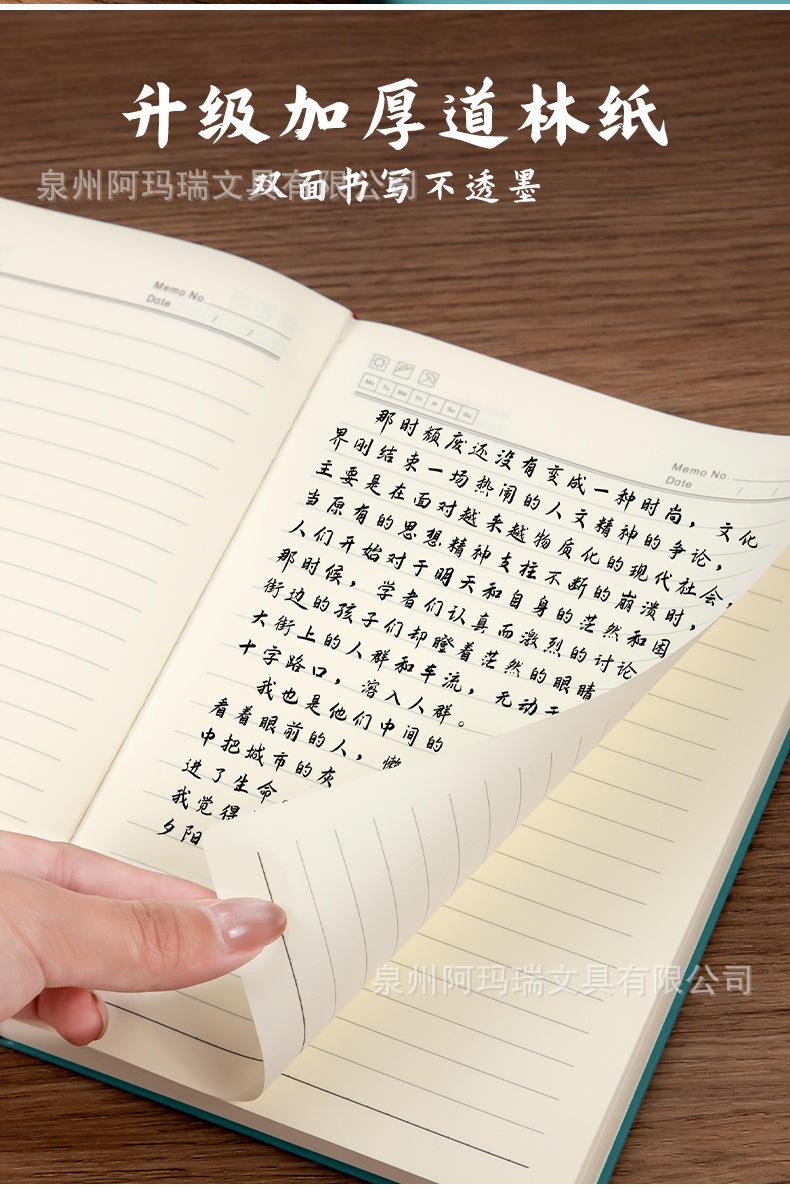 升级加厚道林纸
双面书写不透墨
泉州阿玛瑞文具有限公司
Memo No.
Date / /
Memo No.
Date / /
Mo Tu We Th Fr Sa Su
那时颓废还没有变成一种时尚，文化
界刚结束一场热闹的人文精神的争论，
主要是在面对越来越物质化的现代社会，
当原有的思想精神支柱不断的崩溃时，
人们开始对于明天和自身的茫然和困
那时候，学者们认真而激烈的讨论
街边的孩子们却瞪着茫然的眼睛
大街上的人群和车流，无动于
十字路口，溶入人群。
我也是他们中间的
看着眼前的人，懒
中把城市的灰
进了生命
我觉得
夕阳
泉州阿玛瑞文具有限公司